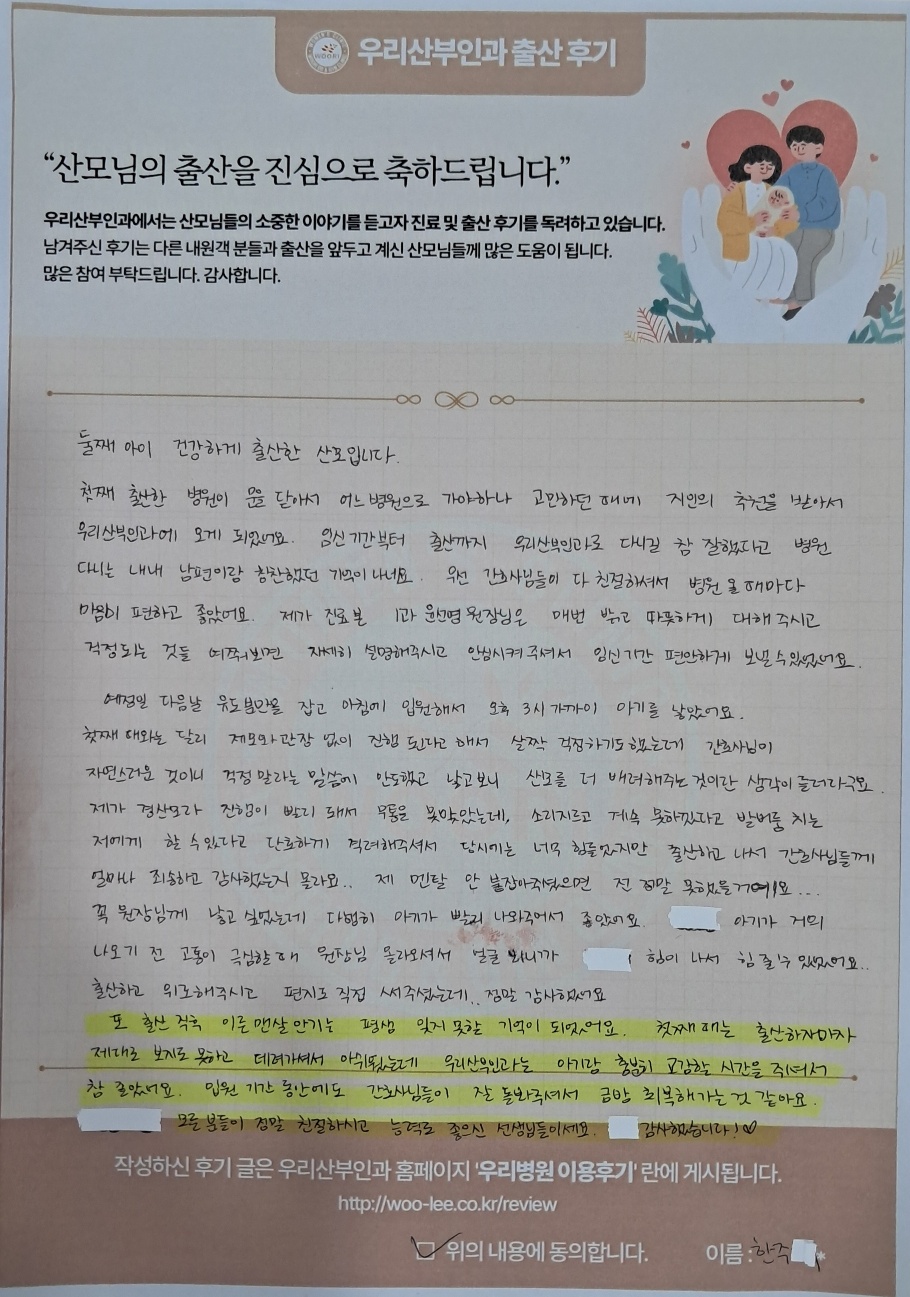 WOORI
우리산부인과 출산 후기
“산모님의 출산을 진심으로 축하드립니다.”
우리산부인과에서는 산모님들의 소중한 이야기를 듣고자 진료 및 출산 후기를 독려하고 있습니다.
남겨주신 후기는 다른 내원객 분들과 출산을 앞두고 계신 산모님들께 많은 도움이 됩니다.
많은 참여 부탁드립니다. 감사합니다.
둘째 아이 건강하게 출산한 산모입니다.
첫째 출산한 병원이 문을 닫아서 어느병원으로 가야하나 고민하던 때에 지인의 추천을 받아서
우리산부인과에 오게 되었어요. 임신기간부터 출산까지 우리산부인과로 다니길 참 잘했다고 병원
다니는 내내 남편이랑 칭찬했던 기억이 나네요. 우선 간호사님들이 다 친절하셔서 병원 올때마다
마음이 편하고 좋았어요. 제가 진료본 1과 윤선영 원장님은 매번 밝고 따뜻하게 대해주시고
걱정되는 것들 여쭤보면 자세히 설명해주시고 안심시켜주셔서 임신기간 편안하게 보낼수있었어요.
예정일 다음날 유도분만을 잡고 아침에 입원해서 오후 3시 가까이 아기를 낳았어요.
첫째 때와는 달리 제모와 관장 없이 진행 된다고 해서 살짝 걱정하기도 했는데 간호사님이
자연스러운 것이니 걱정말라는 말씀에 안도했고 낳고보니 산모를 더 배려해주는 것이란 생각이 들더라구요.
제가 경산모라 진행이 빨리 돼서 무통을 못맞았는데, 소리지르고 계속 못하겠다고 발버둥 치는
저에게 할 수있다고 단호하게 격려해주셔서 당시에는 너무 힘들었지만 출산하고 나서 간호사님들께
얼마나 죄송하고 감사했는지 몰라요.. 제 멘탈 안 붙잡아주셨으면 전 정말 못했을거예요...
꼭 원장님께 낳고 싶었는데 다행히 아기가 빨리 나와주어서 좋았어요. 아기가 거의
나오기 전 고통이 극심할때 원장님 올라오셔서 얼굴 뵈니까 힘이 나서 힘 줄수 있었어요..
출산하고 위로해주시고 편지도 직접 써주셨는데.. 정말 감사했어요
또 출산 직후 이른 맨살 안기는 평생 잊지 못할 기억이 되었어요. 첫째 때는 출산하자마자
제대로 보지도 못하고 데려가셔서 아쉬웠는데 우리산부인과는 아기랑 충분히 교감할 시간을 주셔서
참 좋았어요. 입원 기간 동안에도 간호사님들이 잘 돌봐주셔서 금방 회복해가는 것 같아요.
모든 분들이 정말 친절하시고 능력도 좋으신 선생님들이세요. 감사했습니다!♡
작성하신 후기 글은 우리산부인과 홈페이지 '우리병원 이용후기' 란에 게시됩니다.
http://woo-lee.co.kr/review
위의 내용에 동의합니다. 이름 : 한주